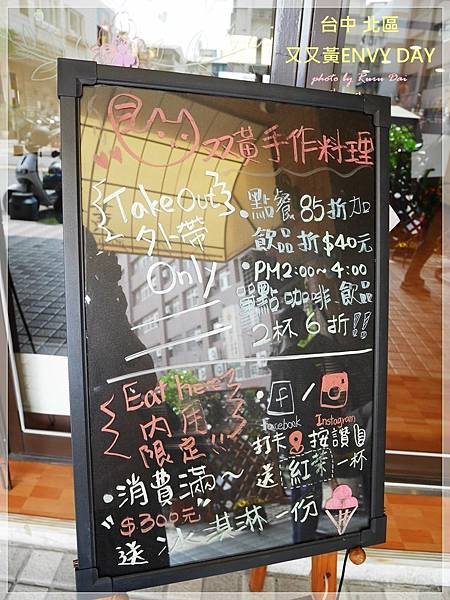 台中 北區
又又黃ENVY DAY
photo by Ruru Dai
双黃手作料理
Take Out
外帶
Only
•點餐85折加
飲品折$40元
•PM2:00~4:00
單點咖啡飲品
2杯6折!!
Eat here
內用
限定!!!
f / Instagram
Facebook
打卡&按讚
送紅茶一杯
•消費滿~
"$300元"
送冰淇淋一份